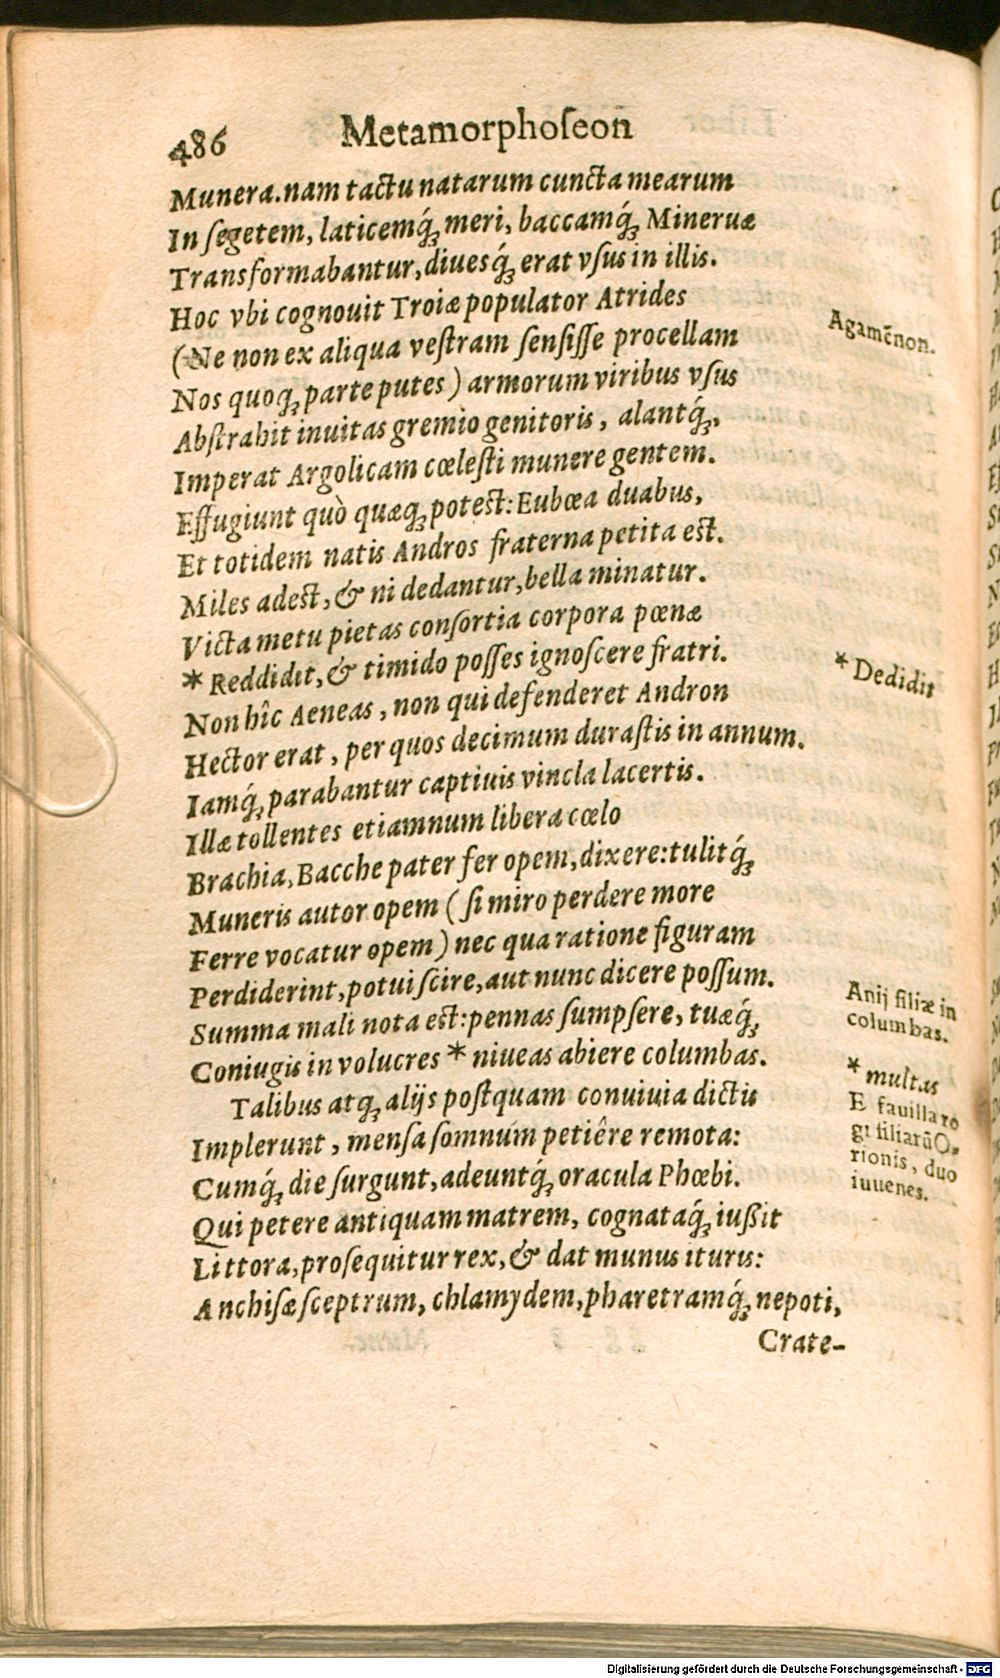 486 Metamorphoſeon
Munera. nam tactu natarum cuncta mearum
In ſegetem, laticemq́ꝫ meri, baccamq́ꝫ Mineruæ
Transformabantur, diuesq́ꝫ erat vſus in illis.
Hoc vbi cognouit Troiæ populator Atrides
Agamẽnon.
(Ne non ex aliqua veſtram ſenſiſſe procellam
Nos quoqꝫ parte putes) armorum viribus vſus
Abſtrahit inuitas gremio genitoris, alantq́ꝫ,
Imperat Argolicam cœleſti munere gentem.
Effugiunt quò quæqꝫ potest: Eubœa duabus,
Et totidem natis Andros fraterna petita est.
Miles adest, & ni dedantur, bella minatur.
Victa metu pietas conſortia corpora pœnæ
* Reddidit, & timido poſſes ignoſcere fratri.
* Dedidit
Non hîc Aeneas, non qui defenderet Andron
Hector erat, per quos decimum duraſtis in annum.
Iamq́ꝫ parabantur captiuis vincla lacertis.
Illæ tollentes etiamnum libera cœlo
Brachia, Bacche pater fer opem, dixere: tulitq́ꝫ
Muneris autor opem (ſi miro perdere more
Ferre vocatur opem) nec qua ratione figuram
Perdiderint, potui ſcire, aut nunc dicere poſſum.
Summa mali nota est: pennas ſumpſere, tuæq́ꝫ
Anij filiæ in
columbas.
Coniugis in volucres * niueas abiere columbas.
* multas
Talibus atqꝫ alijs poſtquam conuiuia dictis
E fauilla ro
gi filiarũ O-
rionis, duo
iuuenes.
Implerunt, menſa ſomnum petiêre remota:
Cumq́ꝫ die ſurgunt, adeuntq́ꝫ oracula Phœbi.
Qui petere antiquam matrem, cognataq́ꝫ iußit
Littora, proſequitur rex, & dat munus ituris:
Anchiſæ ſceptrum, chlamydem, pharetramq́ꝫ nepoti,
Crate-
Digitalisierung gefördert durch die Deutsche Forschungsgemeinschaft - DFG